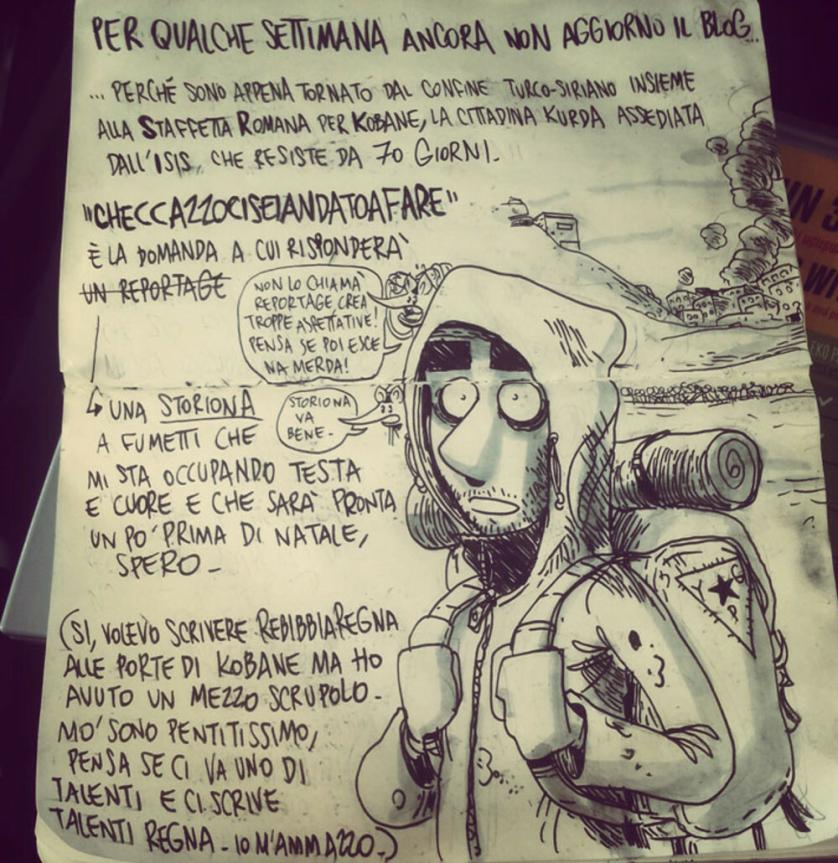 PER QUALCHE SETTIMANA ANCORA NON AGGIORNO IL BLOG..
... PERCHÉ SONO APPENA TORNATO DAL CONFINE TURCO-SIRIANO INSIEME
ALLA STAFFETTA ROMANA PER KOBANE, LA CITTADINA KURDA ASSEDIATA
DALL'ISIS, CHE RESISTE DA 70 GIORNI.
"CHECCAZZOCISEIANDATOAFARE"
È LA DOMANDA A CUI RISPONDERA'
UN REPORTAGE
NON LO CHIAMA'
REPORTAGE CREA
TROPPE ASPETTATIVE!
PENSA SE POI ESCE
NA MERDA!
UNA STORIONA
A FUMETTI CHE
MI STA OCCUPANDO TESTA
E CUORE E CHE SARA' PRONTA
UN PO' PRIMA DI NATALE,
SPERO-
STORIONA
VA
BENE-
(SI, VOLEVO SCRIVERE REBIBBIAREGNA
ALLE PORTE DI KOBANE MA HO
AVUTO UN MEZZO SCRUPOLO-
MO' SONO PENTITISSIMO,
PENSA SE CI VA UNO DI
TALENTI E CI SCRIVE
TALENTI REGNA- IO M'AMMAZZO-)